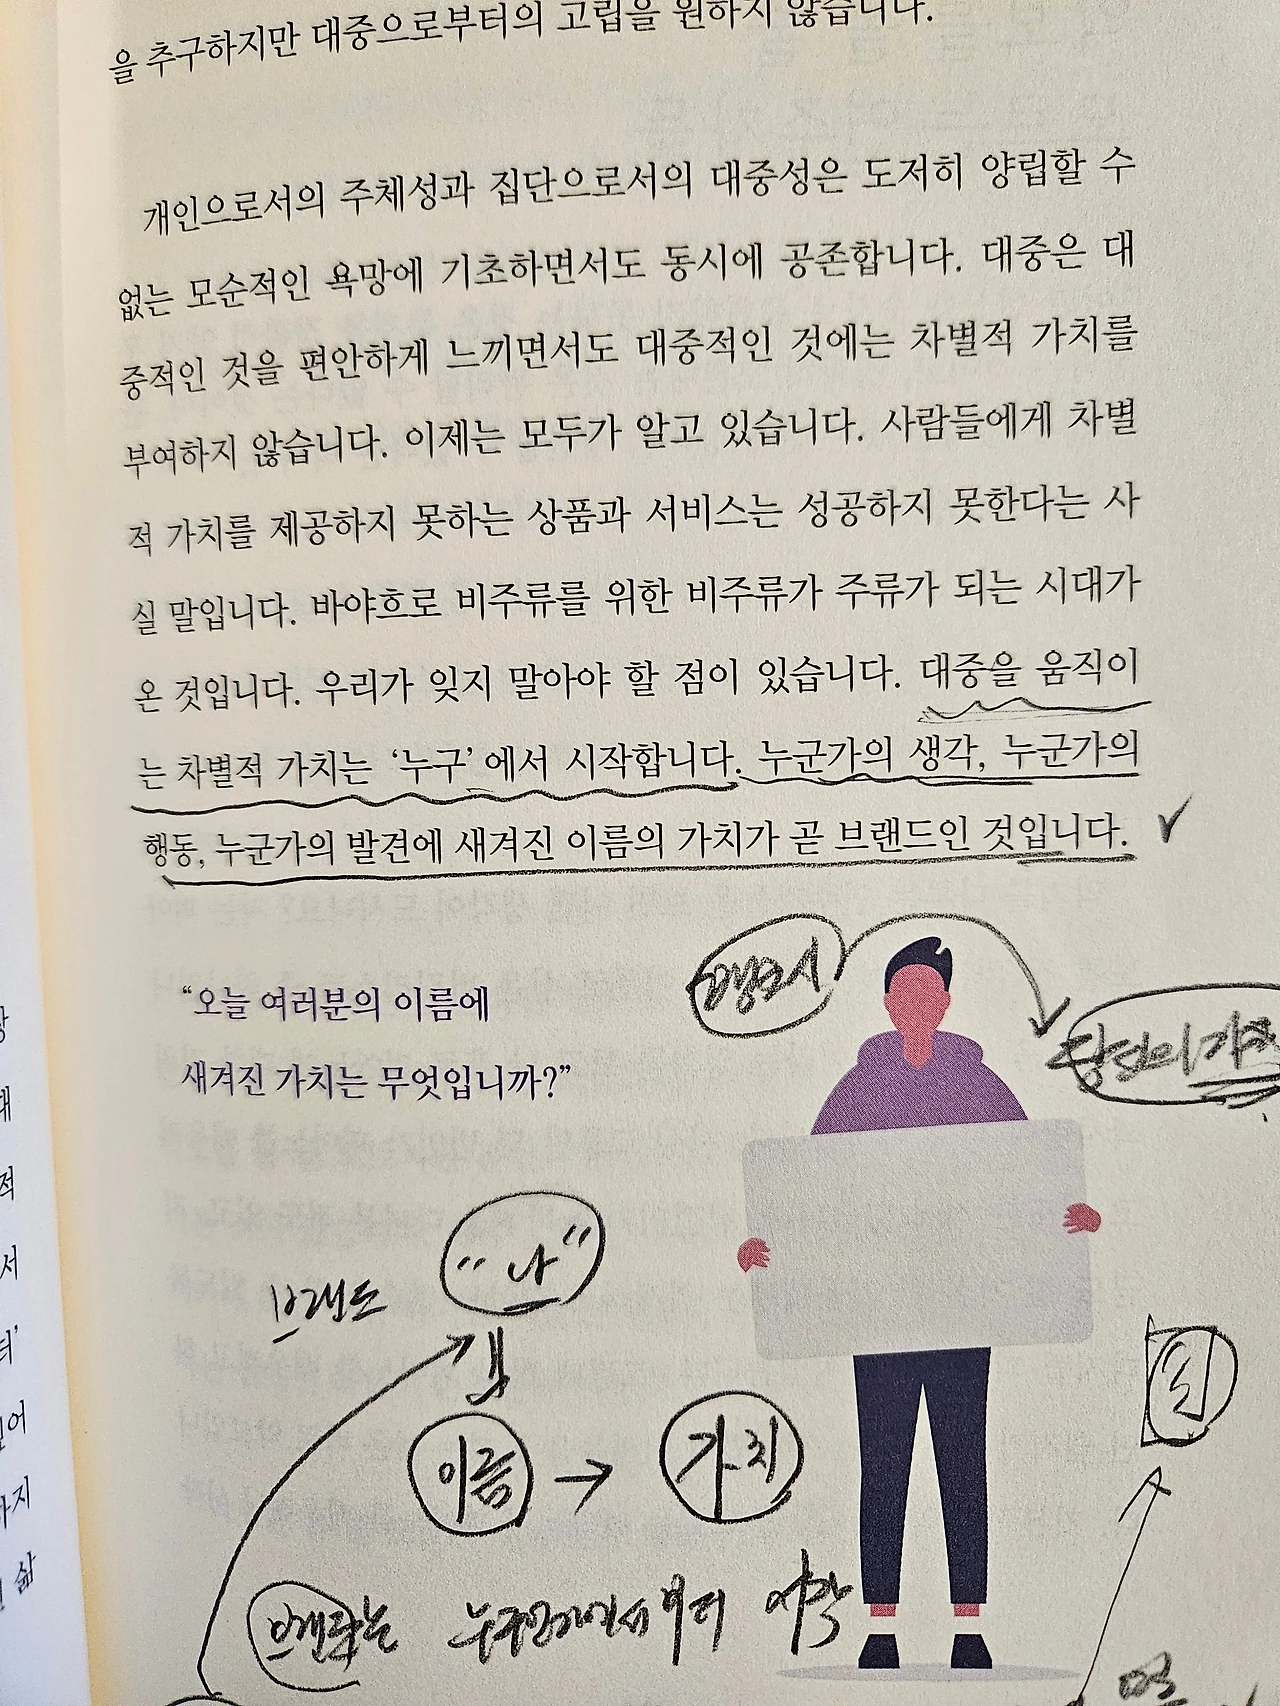 을 추구하지만 대중으로부터의 고립을 원하지 않습니다.
개인으로서의 주체성과 집단으로서의 대중성은 도저히 양립할 수
없는 모순적인 욕망에 기초하면서도 동시에 공존합니다. 대중은 대
중적인 것을 편안하게 느끼면서도 대중적인 것에는 차별적 가치를
부여하지 않습니다. 이제는 모두가 알고 있습니다. 사람들에게 차별
적 가치를 제공하지 못하는 상품과 서비스는 성공하지 못한다는 사
실 말입니다. 바야흐로 비주류를 위한 비주류가 주류가 되는 시대가
온 것입니다. 우리가 잊지 말아야 할 점이 있습니다. 대중을 움직이
는 차별적 가치는 ‘누구’에서 시작합니다. 누군가의 생각, 누군가의
행동, 누군가의 발견에 새겨진 이름의 가치가 곧 브랜드인 것입니다.
“오늘 여러분의 이름에
새겨진 가치는 무엇입니까?”
당신의 가치
"나"
브랜드
이름 → 가치
브랜드는 누군가에서부터 시작
적
서
터’
하지
삶